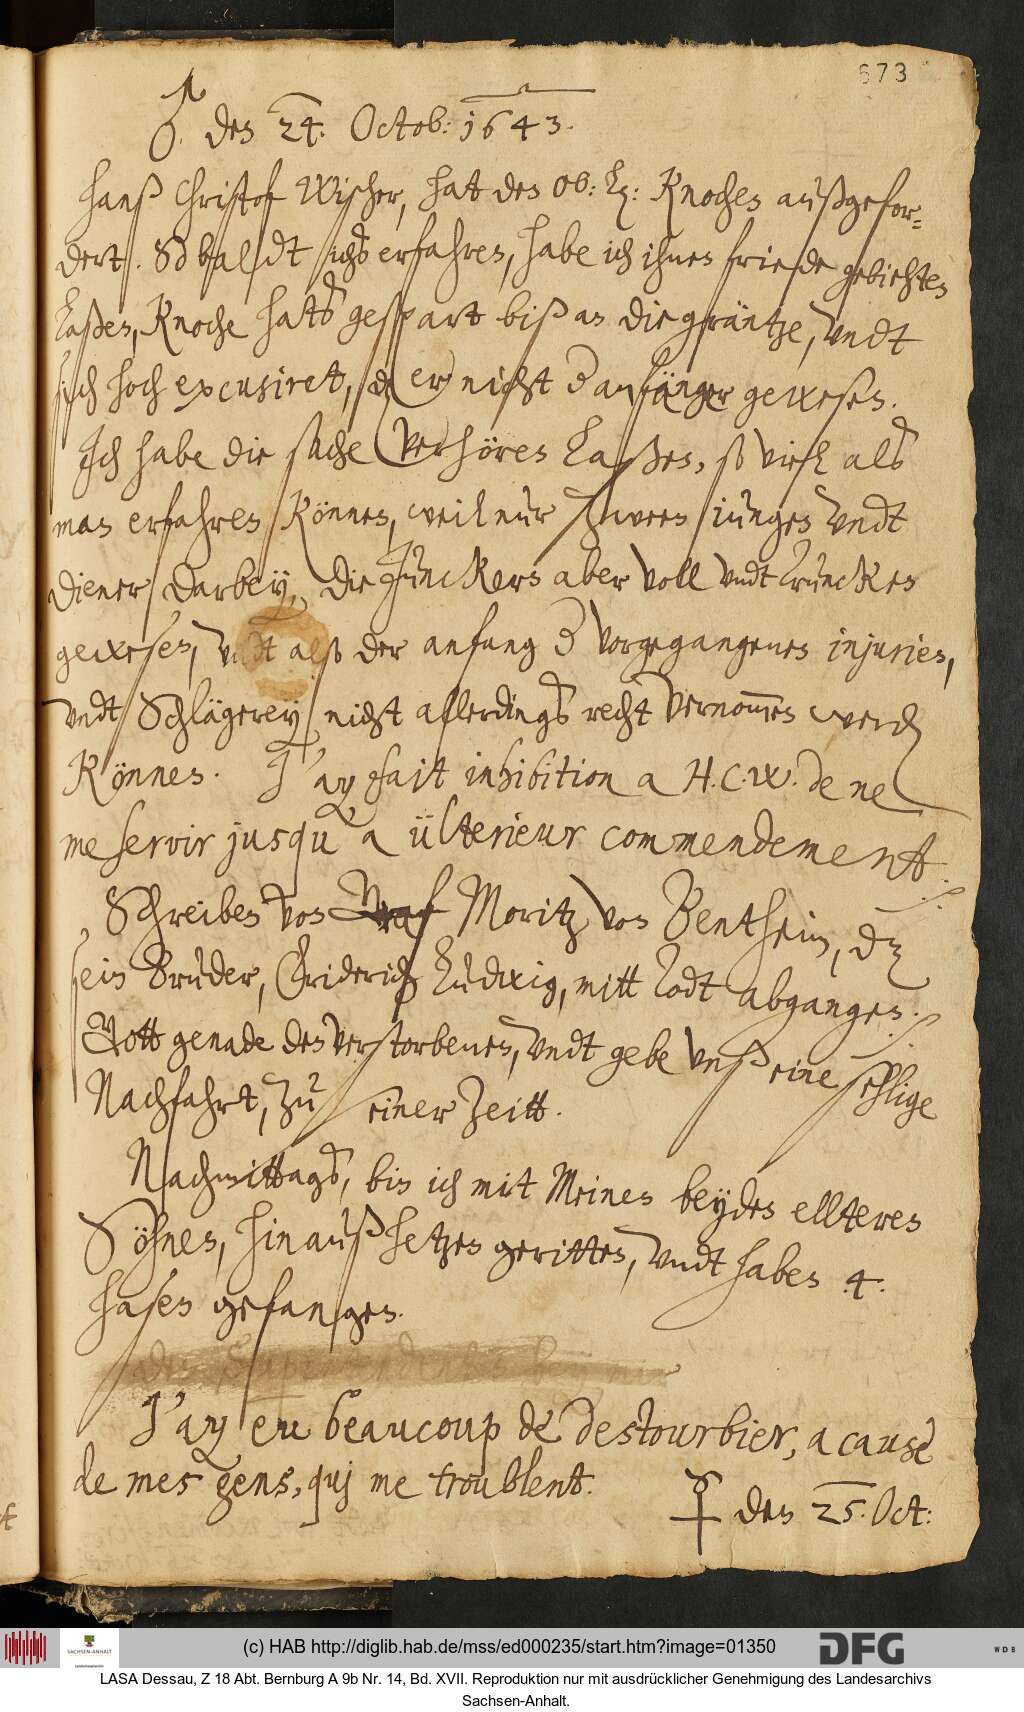 673
♂ den 24. Octob: 1643.
Hanß Christof Wischer, hat den Ob: Lt: Knochen außgefor-
dert. So baldt ichs erfahren, habe ich ihnen friede gebiehten
laßen, Knoche hats gespart biß an die gräntze, undt
sich hoch excusiret, dz er nicht der anfänger gewesen.
Ich habe die sache verhören laßen, so viel als
man erfahren können, weil nur zween jungen undt
diener darbey, die Junckern aber voll undt truncken
gewesen, undt alß der anfang der vorgegangenen injurien,
undt Schlägerey nicht allerdings recht vernommen werden
können. J'ay fait inhibition a H. C. W. de ne
me servir jusqu'a ülterieur commendement.
Schreiben von Graf Moritz von Bentheim, dz
sein Bruder, Friderich Ludwig, mitt Todt abgangen.
Gott genade den verstorbenen, undt gebe unß eine sehlige
Nachfahrt, zu seiner Zeitt.
Nachmittags, bin ich mit Meinen beyden ellteren
Söhnen, hinauß hetzen geritten, undt haben 4.
hasen gefangen.
J'ay eu beaucoup de destourbier, a cause
de mes gens, quj me troublent.
☿ den 25. Oct:
(c) HAB http://diglib.hab.de/mss/ed000235/start.htm?image=01350
SACHSEN-ANHALT
DFG
WDB
LASA Dessau, Z 18 Abt. Bernburg A 9b Nr. 14, Bd. XVII. Reproduktion nur mit ausdrücklicher Genehmigung des Landesarchivs
Sachsen-Anhalt.